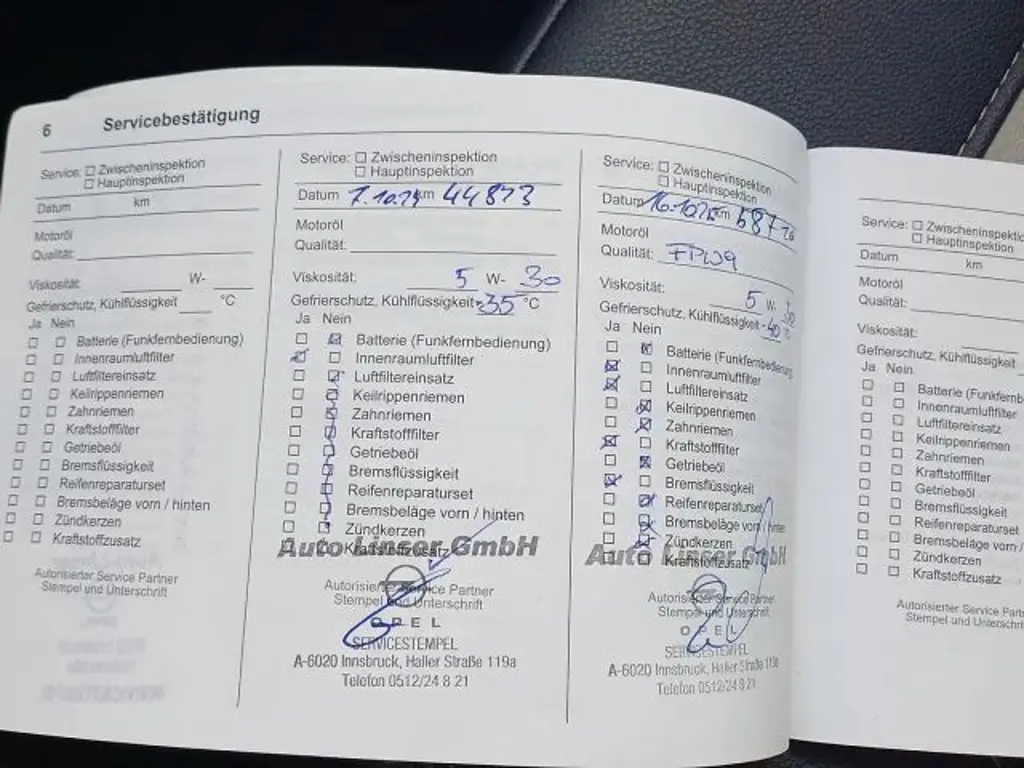 6 Servicebestätigung
Service: ☐ Zwischeninspektion
☐ Hauptinspektion
Datum km
Motoröl
Qualität:
Viskosität: W-
Gefrierschutz, Kühlflüssigkeit °C
Ja Nein
☐ ☐ Batterie (Funkfernbedienung)
☐ ☐ Innenraumluftfilter
☐ ☐ Luftfiltereinsatz
☐ ☐ Keilrippenriemen
☐ ☐ Zahnriemen
☐ ☐ Kraftstofffilter
☐ ☐ Getriebeöl
☐ ☐ Bremsflüssigkeit
☐ ☐ Reifenreparaturset
☐ ☐ Bremsbeläge vorn / hinten
☐ ☐ Zündkerzen
☐ ☐ Kraftstoffzusatz
Autorisierter Service Partner
Stempel und Unterschrift
Service: ☐ Zwischeninspektion
☐ Hauptinspektion
Datum 7.10.24 km 44873
Motoröl
Qualität:
Viskosität: 5 W- 30
Gefrierschutz, Kühlflüssigkeit -35 °C
Ja Nein
☐ ☒ Batterie (Funkfernbedienung)
☒ ☐ Innenraumluftfilter
☐ ☒ Luftfiltereinsatz
☐ ☒ Keilrippenriemen
☐ ☒ Zahnriemen
☐ ☒ Kraftstofffilter
☐ ☒ Getriebeöl
☐ ☒ Bremsflüssigkeit
☐ ☒ Reifenreparaturset
☐ ☒ Bremsbeläge vorn / hinten
☐ ☒ Zündkerzen
Kraftstoffzusatz
Auto Linser GmbH
Autorisierter Service Partner
Stempel und Unterschrift
OPEL
SERVICESTEMPEL
A-6020 Innsbruck, Haller Straße 119a
Telefon 0512/24 8 21
Service: ☐ Zwischeninspektion
☐ Hauptinspektion
Datum 16.10.25 km 587
Motoröl
Qualität:
Viskosität: 5 W- 30
Gefrierschutz, Kühlflüssigkeit -40 °C
Ja Nein
☐ ☒ Batterie (Funkfernbedienung
☒ ☐ Innenraumluftfilter
☒ ☐ Luftfiltereinsatz
☐ ☒ Keilrippenriemen
☐ ☒ Zahnriemen
☒ ☐ Kraftstofffilter
☐ ☒ Getriebeöl
☒ ☐ Bremsflüssigkeit
☐ ☒ Reifenreparaturset
☐ ☒ Bremsbeläge vorn / hinten
☐ ☒ Zündkerzen
☐ ☐ Kraftstoffzusatz
Auto Linser GmbH
Autorisierter Service Partner
Stempel und Unterschrift
OPEL
SERVICESTEMPEL
A-6020 Innsbruck, Haller Straße 119a
Telefon 0512/24 8 21
Service: ☐ Zwischeninspektio
☐ Hauptinspektion
Datum km
Motoröl
Qualität:
Viskosität:
Gefrierschutz, Kühlflüssigkeit
Ja Nein
☐ ☐ Batterie (Funkfernb
☐ ☐ Innenraumluftfilter
☐ ☐ Luftfiltereinsatz
☐ ☐ Keilrippenriemen
☐ ☐ Zahnriemen
☐ ☐ Kraftstofffilter
☐ ☐ Getriebeöl
☐ ☐ Bremsflüssigkeit
☐ ☐ Reifenreparaturset
☐ ☐ Bremsbeläge vorn /
☐ ☐ Zündkerzen
☐ ☐ Kraftstoffzusatz
Autorisierter Service Part
Stempel und Unterschrift